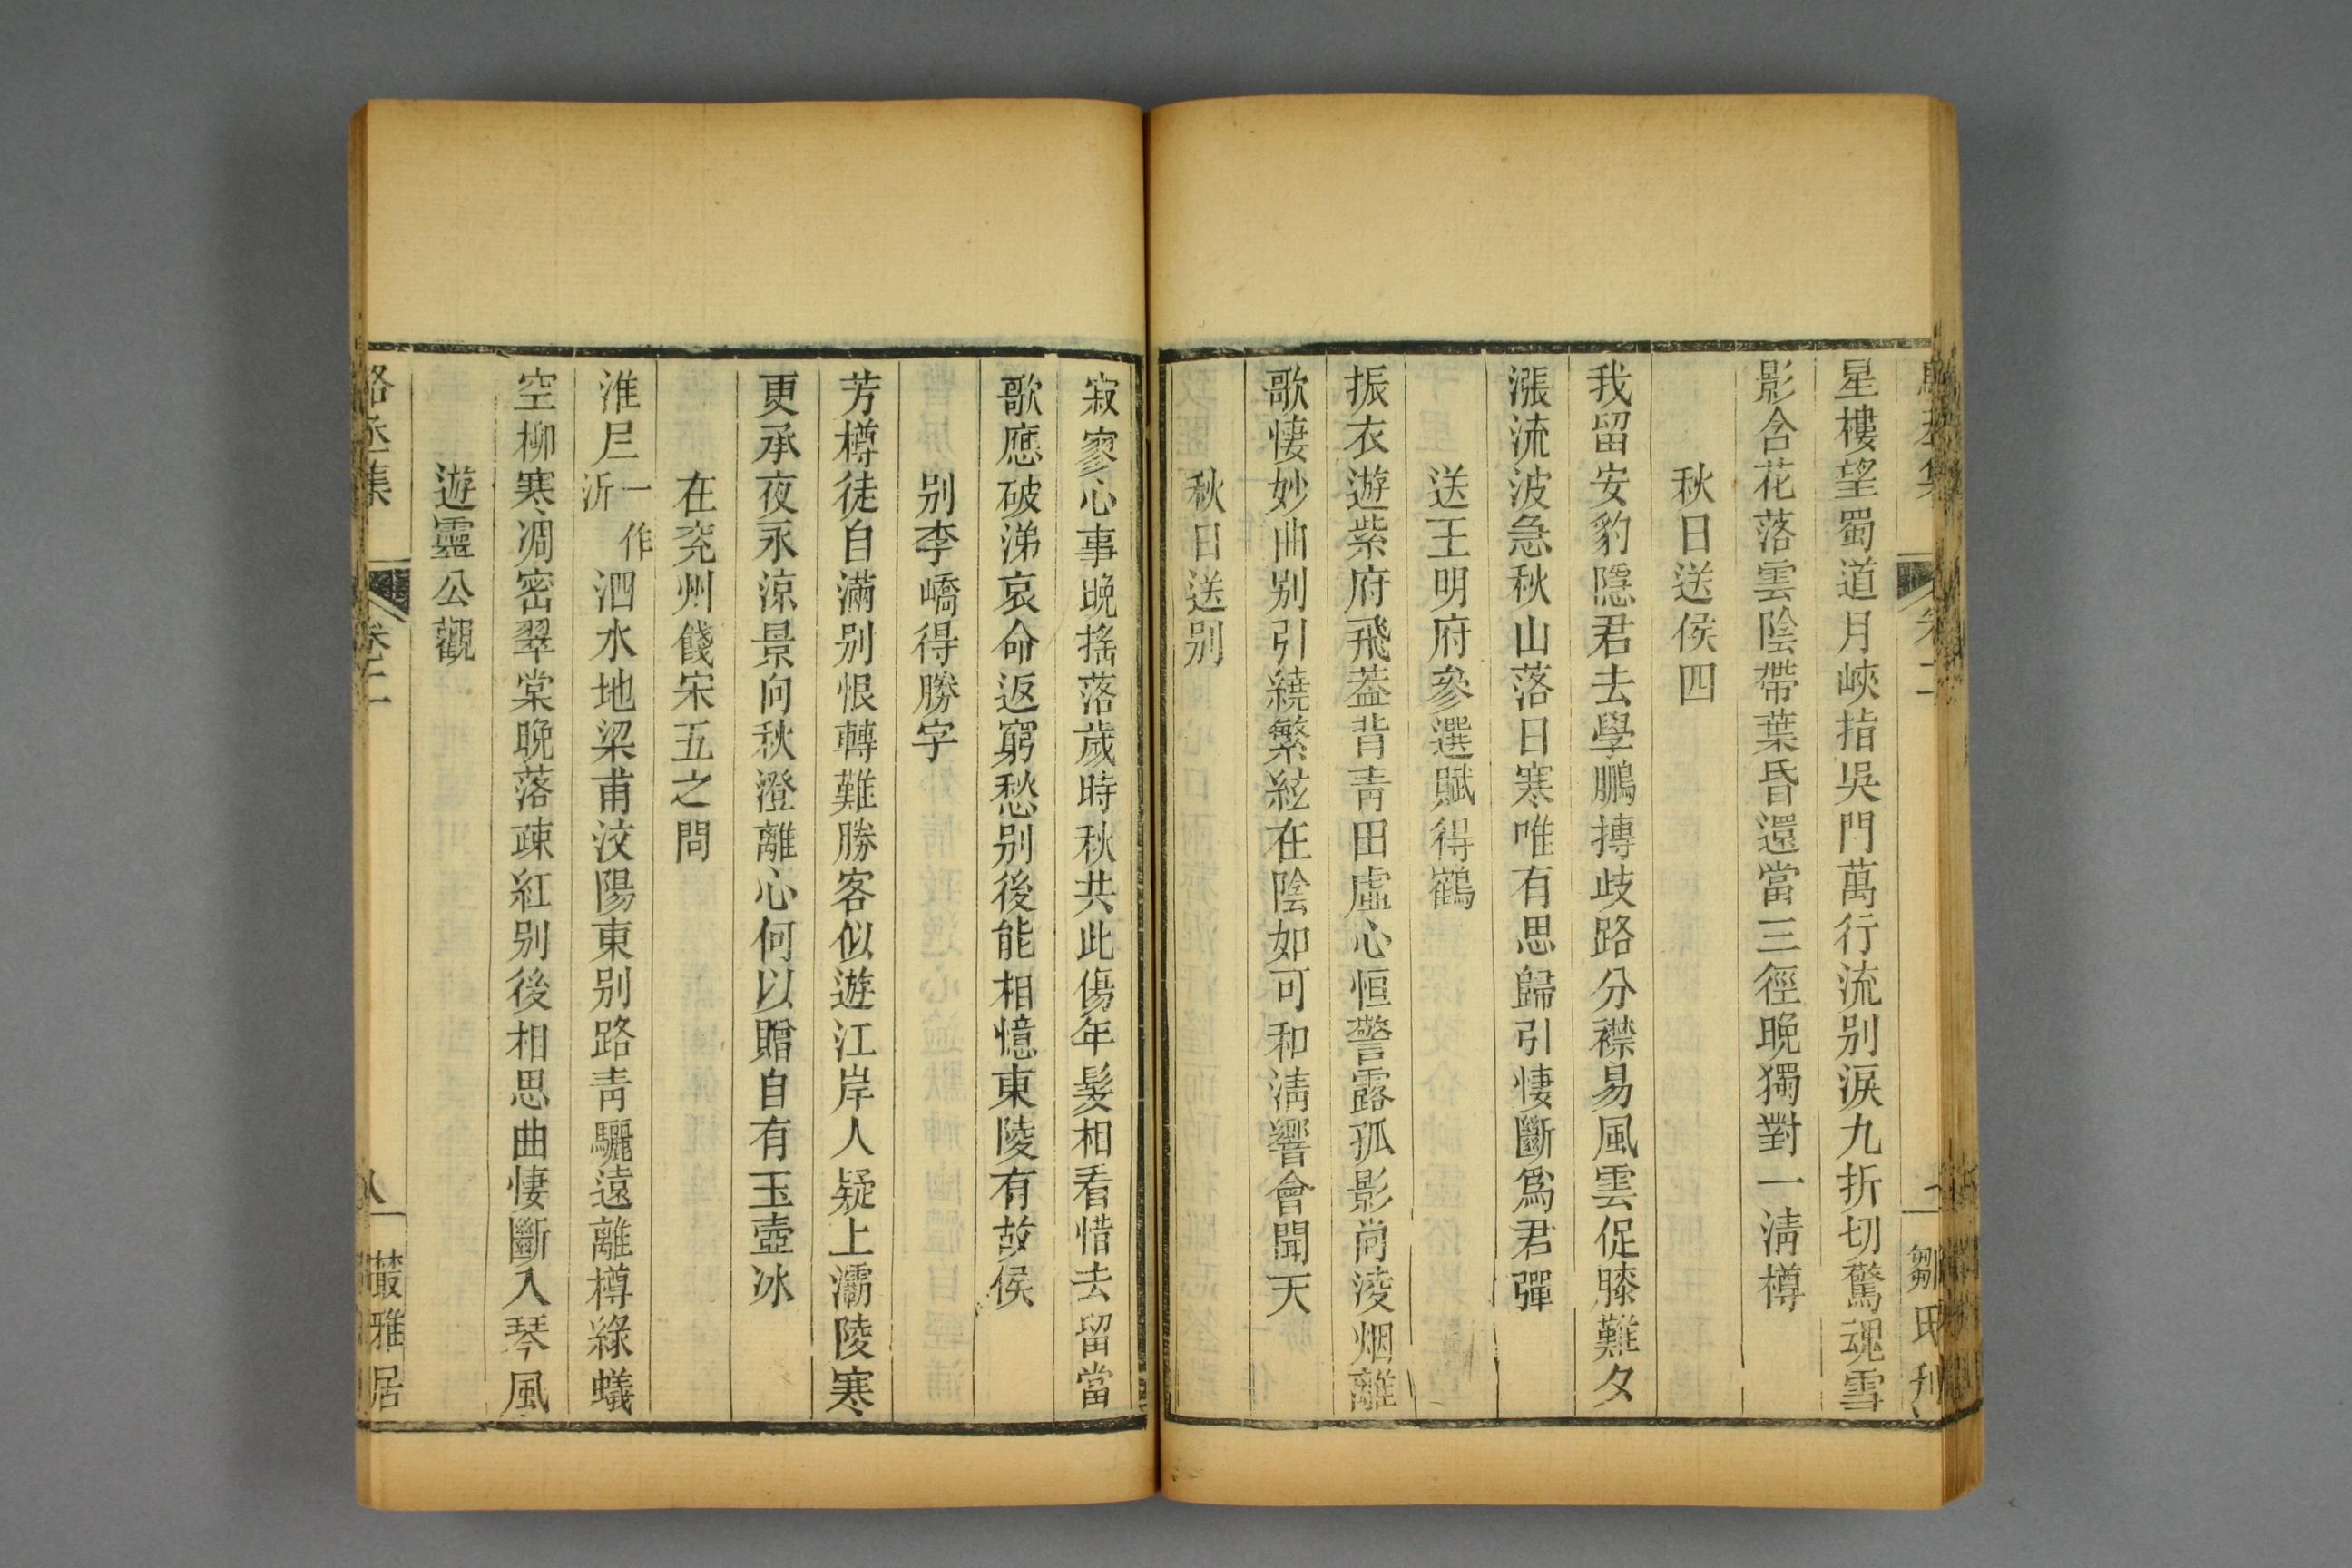 星樓望蜀道月峽指吳門萬行流别淚九折切驚魂雪
影含花落雲陰帶葉昏還當三徑晩獨對一淸樽
秋日送侯四
我留安豹隱君去學鵬摶歧路分襟易風雲促膝難夕
漲流波急秋山落日寒唯有思歸引悽斷爲君彈
送王明府參選賦得鶴
振衣遊紫府飛葢背靑田虛心恒警露孤影尚淩烟離
歌悽妙曲别引繞繁絃在陰如可和淸響會聞天
秋日送别
寂寥心事晚搖落歲時秋共此傷年髮相看惜去留當
歌應破涕哀命返窮愁别後能相憶東陵有故侯
别李嶠得勝字
芳樽徒自滿别恨轉難勝客似遊江岸人疑上灞陵寒
更承夜永涼景向秋澄離心何以贈自有玉壺冰
在兖州餞宋五之問
淮𡰱一作沂泗水地梁甫汶陽東别路靑驪遠離樽綠蟻
空柳寒凋密翠棠晚落疎紅别後相思曲悽斷入琴風
遊靈公觀
駱丞集
卷二
八
叢雅居
鄒氏刊